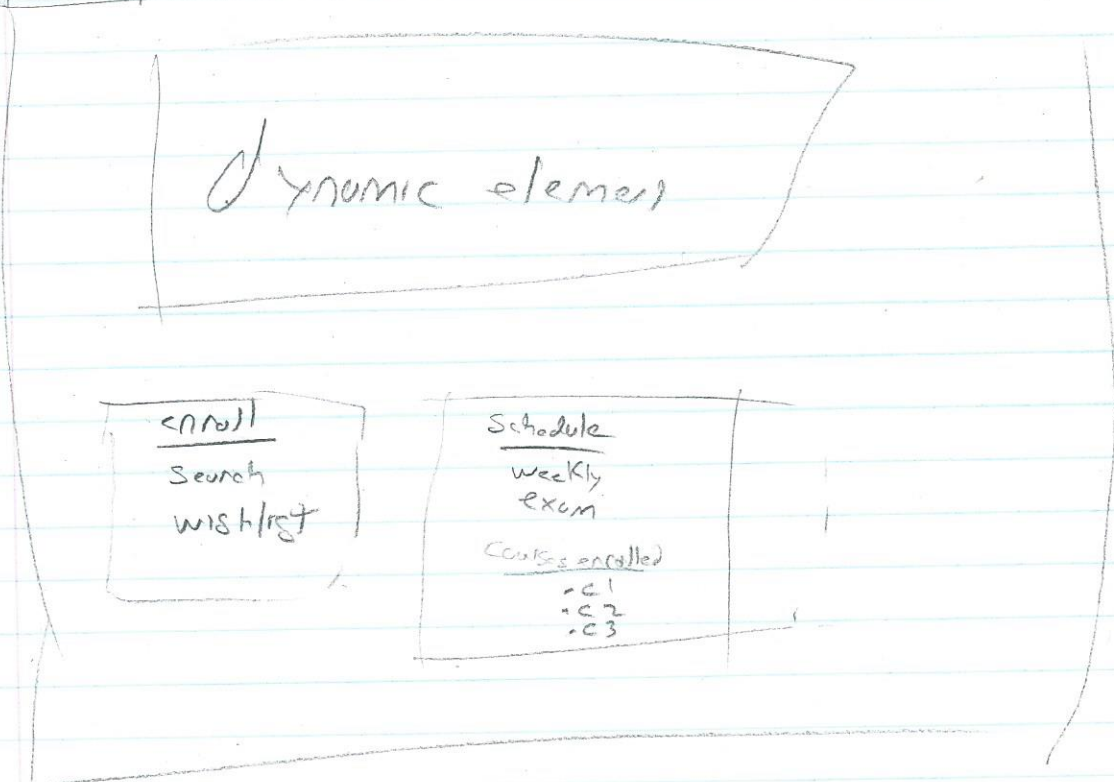 dynamic element
enroll
Search
wishlist
Schedule
weekly
exam
Courses enrolled
• C1
• C2
• C3